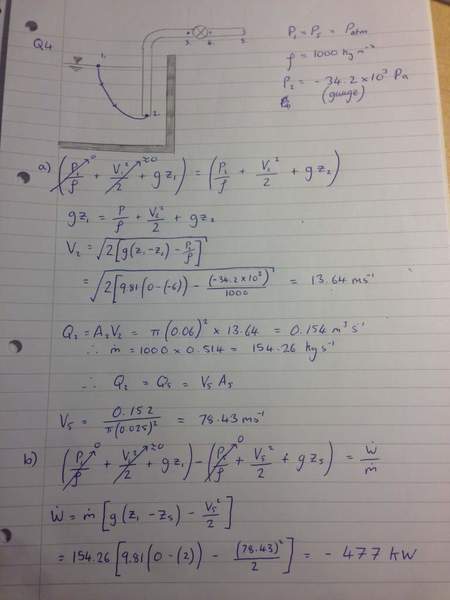 Q4
1.
2.
3. 4. 5.
P₁ = P₅ = Patm
ρ = 1000 kg m⁻³
P₂ = -34.2 × 10³ Pa
(guage)
a) (P₁/ρ + V₁²/2 + gz₁) = (P₂/ρ + V₂²/2 + gz₂)
gz₁ = P/ρ + V₂²/2 + gz₂
V₂ = √2[g(z₁-z₂) - P₂/ρ]
= √2[9.81(0-(-6)) - (-34.2×10³)/1000] = 13.64 ms⁻¹
Q₂ = A₂V₂ = π(0.06)² × 13.64 = 0.154 m³ s⁻¹
∴ ṁ = 1000 × 0.514 = 154.26 kg s⁻¹
∴ Q₂ = Q₅ = V₅ A₅
V₅ = 0.152/π(0.025)² = 78.43 ms⁻¹
b) (P₁/ρ + V₁²/2 + gz₁) - (P₅/ρ + V₅²/2 + gz₅) = Ẇ/ṁ
Ẇ = ṁ[g(z₁ - z₅) - V₅²/2]
= 154.26[9.81(0-(2)) - (78.43)²/2] = - 477 kW